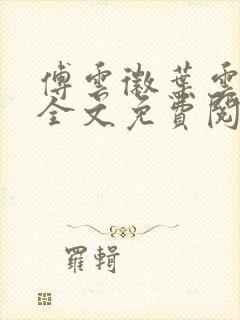 傅雲徽葉雲
全文免費閱
羅輯